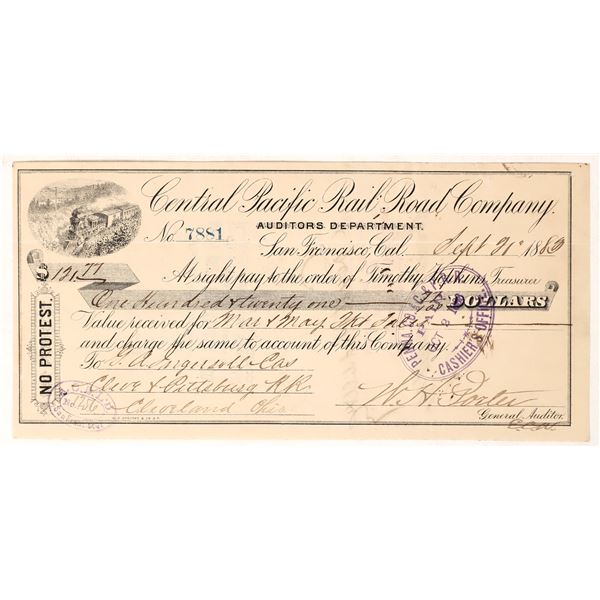 Central Pacific Rail Road Company.
AUDITORS DEPARTMENT.
No. 7881
San Francisco, Cal. Sept 21 1883
$ 121 77
At sight pay to the order of Timothy Hopkins Treasurer
One Hundred & twenty one 77 DOLLARS
Value received for Mar & May
and charge the same to account of this Company.
To Ingersoll Cas
Cleve & Pittsburg R.R.
Cleveland Ohio
W. H. Porter
General Auditor.
NO PROTEST.
PENNA. CO.
PAID
OCT 2
CASHIER'S OFFICE